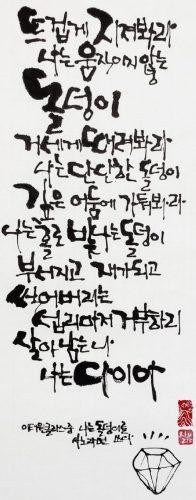 뜨겁게 지져봐라
나는 움직이지 않는
돌덩이
거세게 때려봐라
나는 단단한 돌덩이
깊은 어둠에 가둬봐라
나는 홀로 빛나는 돌덩이
부서지고 재가되고
썩어버리는
섭리마저 거부하리
살아남은 나
나는 다이아
이태원클라스중 나는 돌덩이를
쓰다